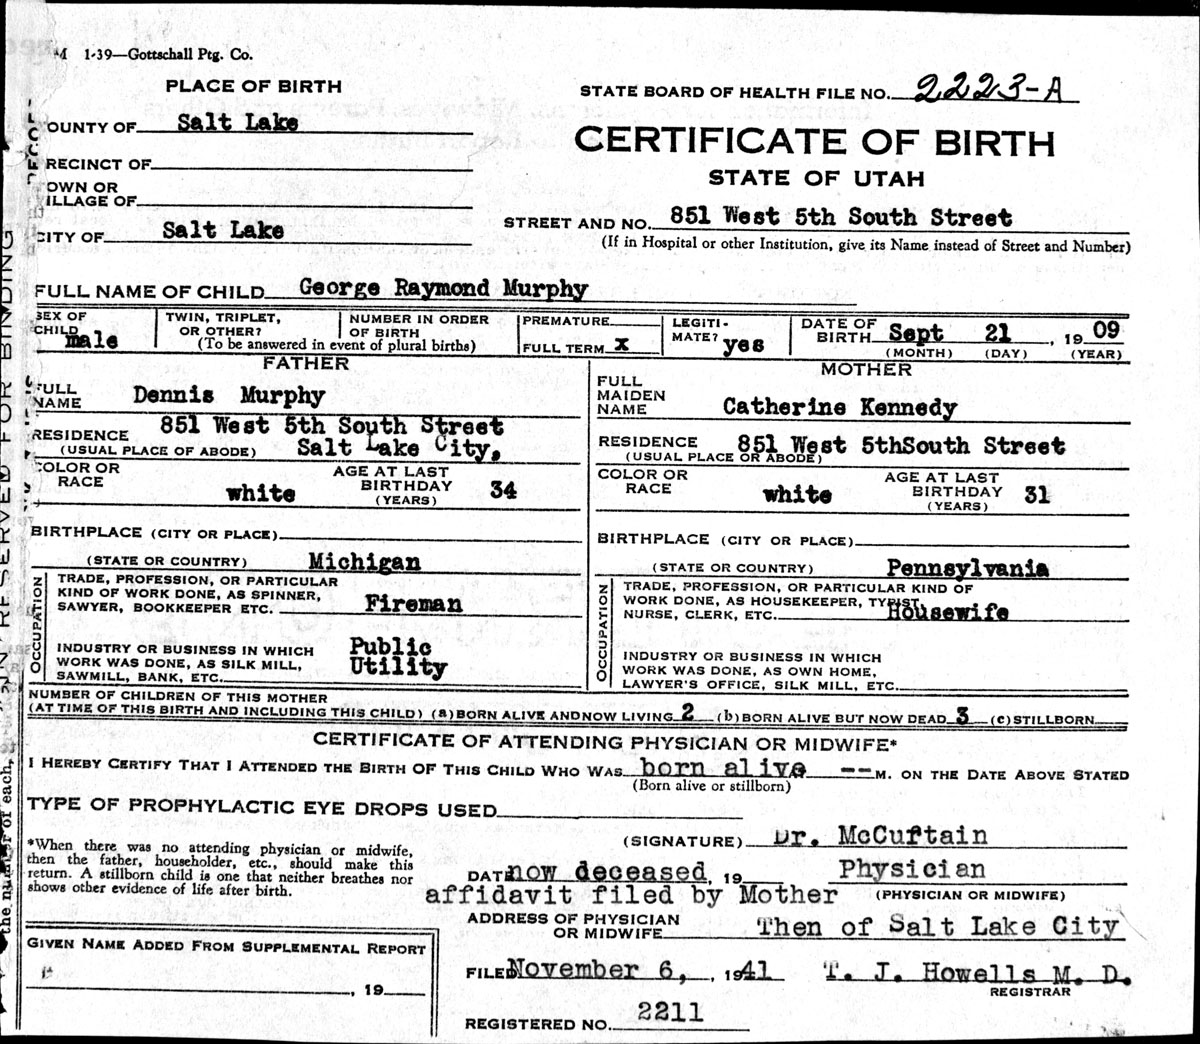 M 1-39—Gottschall Ptg. Co.
PLACE OF BIRTH
STATE BOARD OF HEALTH FILE NO. 2223-A
OUNTY OF Salt Lake
CERTIFICATE OF BIRTH
RECINCT OF
STATE OF UTAH
OWN OR
ILLAGE OF
STREET AND NO. 851 West 5th South Street
CITY OF Salt Lake
(If in Hospital or other Institution, give its Name instead of Street and Number)
FULL NAME OF CHILD George Raymond Murphy
SEX OF CHILD male
TWIN, TRIPLET, OR OTHER?
NUMBER IN ORDER OF BIRTH
(To be answered in event of plural births)
PREMATURE
FULL TERM X
LEGITI-
MATE? yes
DATE OF
BIRTH Sept 21, 1909
(MONTH) (DAY) (YEAR)
FATHER
FULL
NAME Dennis Murphy
851 West 5th South Street
RESIDENCE
(USUAL PLACE OF ABODE) Salt Lake City,
COLOR OR
RACE white
AGE AT LAST
BIRTHDAY 34
(YEARS)
BIRTHPLACE (CITY OR PLACE)
(STATE OR COUNTRY) Michigan
OCCUPATION
TRADE, PROFESSION, OR PARTICULAR
KIND OF WORK DONE, AS SPINNER,
SAWYER, BOOKKEEPER ETC. Fireman
INDUSTRY OR BUSINESS IN WHICH Public
WORK WAS DONE, AS SILK MILL, Utility
SAWMILL, BANK, ETC.
MOTHER
FULL
MAIDEN
NAME Catherine Kennedy
RESIDENCE 851 West 5thSouth Street
(USUAL PLACE OR ABODE)
COLOR OR
RACE white
AGE AT LAST
BIRTHDAY 31
(YEARS)
BIRTHPLACE (CITY OR PLACE)
(STATE OR COUNTRY) Pennsylvania
OCCUPATION
TRADE, PROFESSION, OR PARTICULAR KIND OF
WORK DONE, AS HOUSEKEEPER, TYPIST,
NURSE, CLERK, ETC. Housewife
INDUSTRY OR BUSINESS IN WHICH
WORK WAS DONE, AS OWN HOME,
LAWYER'S OFFICE, SILK MILL, ETC.
NUMBER OF CHILDREN OF THIS MOTHER
(AT TIME OF THIS BIRTH AND INCLUDING THIS CHILD) (a) BORN ALIVE AND NOW LIVING 2 (b) BORN ALIVE BUT NOW DEAD 3 (c) STILLBORN
CERTIFICATE OF ATTENDING PHYSICIAN OR MIDWIFE*
I HEREBY CERTIFY THAT I ATTENDED THE BIRTH OF THIS CHILD WHO WAS born alive -- M. ON THE DATE ABOVE STATED
(Born alive or stillborn)
TYPE OF PROPHYLACTIC EYE DROPS USED
*When there was no attending physician or midwife,
then the father, householder, etc., should make this
return. A stillborn child is one that neither breathes nor
shows other evidence of life after birth.
(SIGNATURE) Dr. McCurtain
DATE now deceased, 19 Physician
affidavit filed by Mother (PHYSICIAN OR MIDWIFE)
ADDRESS OF PHYSICIAN
OR MIDWIFE Then of Salt Lake City
GIVEN NAME ADDED FROM SUPPLEMENTAL REPORT
, 19
FILED November 6, , 1941 T. J. Howells M. D.
REGISTRAR
REGISTERED NO. 2211